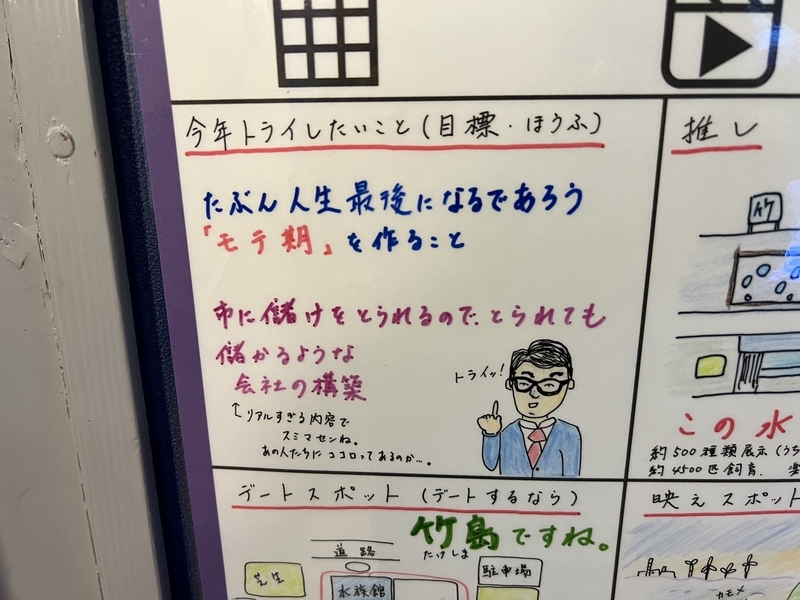 今年トライしたいこと(目標・ほうふ)
たぶん人生最後になるであろう
「モテ期」を作ること
市に儲けをとられるので、とられても
儲かるような
会社の構築
リアルすぎる内容で
スミマセンね。
あの人たちにココロってあるのか…。
トライッ!
推し
竹
この水
約500種類展示(うち
約4500匹飼育.
デートスポット(デートするなら)
竹島ですね。
たけしま
道路
芝生
水族館
駐車場
映えスポット
カモメ